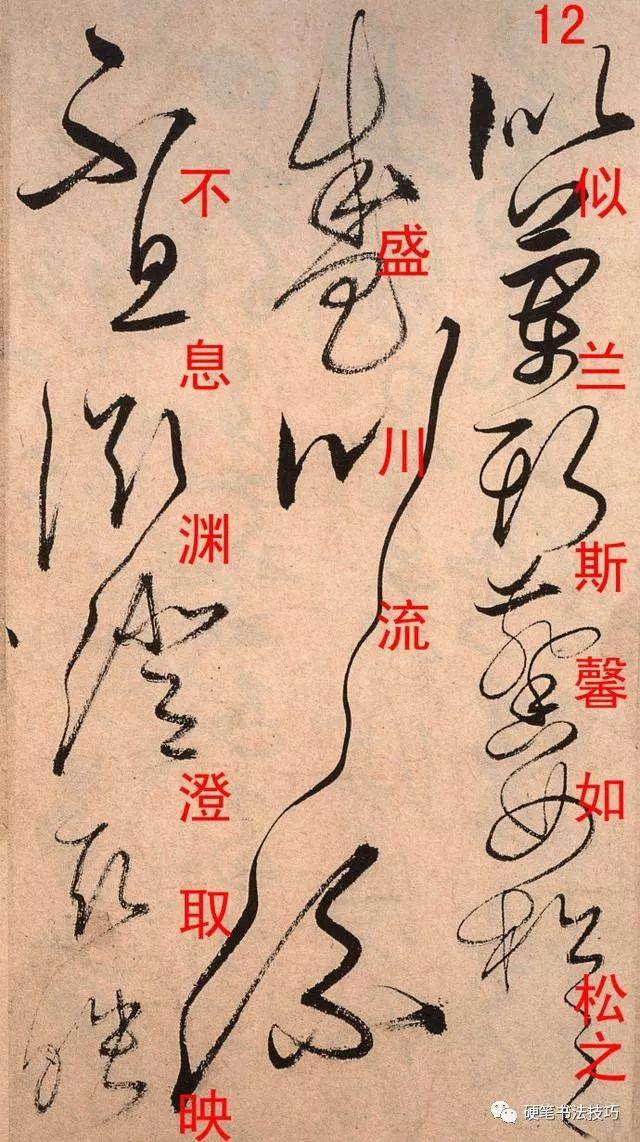 12
似兰斯馨如松之
盛川流
不息渊澄取映
硬笔书法技巧